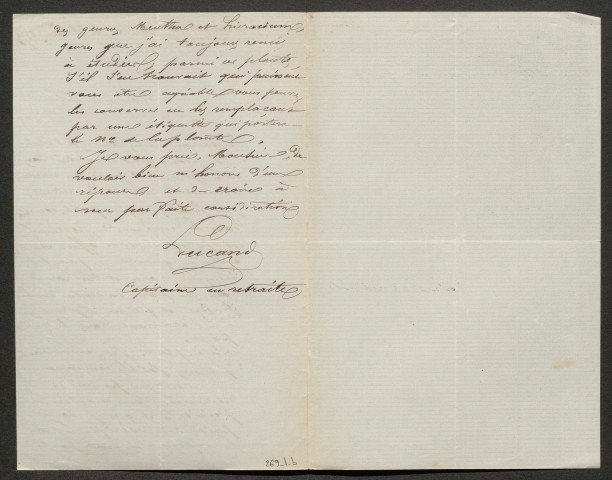 des genres Mentha et hieracium,
genres que j'ai toujours remis
à étudier, parmi ces plantes
s'il s'en trouvait qui puissent
vous être agréable vous pouvez
les conserver en les remplaçant
par une étiquette qui portera
le No de la plante.
Je vous prie, Monsieur, de
vouloir bien m'honorer d'une
réponse et de croire à
ma parfaite considération
Lucand
Capitaine en retraite